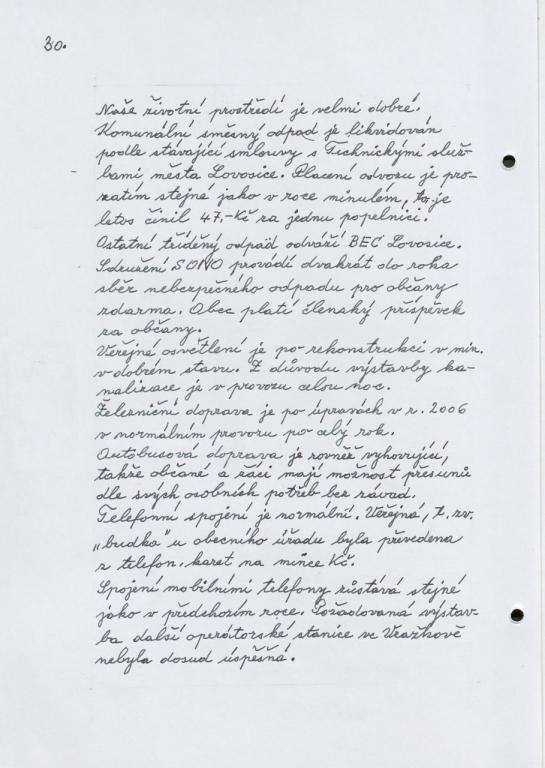 30.
Naše životní prostředí je velmi dobré.
Komunální směsný odpad je likvidován
podle stávající smlouvy s Technickými služ-
bami města Lovosice. Placení odvozu je pro-
zatím stejné jako v roce minulém, tzn. je
letos činil 47,-Kč za jednu popelnici.
Ostatní tříděný odpad odváží BEC Lovosice.
Sdružení SONO provádí dvakrát do roka
sběr nebezpečného odpadu pro občany
zdarma. Obec platí členský příspěvek
za občany.
Veřejné osvětlení je po rekonstrukci v min.
v dobrém stavu. Z důvodu výstavby ka-
nalizace je v provozu celou noc.
Železniční doprava je po úpravách v r. 2006
v normálním provozu po celý rok.
Autobusová doprava je rovněž vyhovující,
takže občané a žáci mají možnost přesunů
dle svých osobních potřeb bez závad.
Telefonní spojení je normální. Veřejná, t. zv.
„budka" u obecního úřadu byla převedena
z telefon. karet na mince Kč.
Spojení mobilními telefony zůstává stejné
jako v předchozím roce. Požadovaná výstav-
ba další operátorské stanice ve Vražkově
nebyla dosud úspěšná.